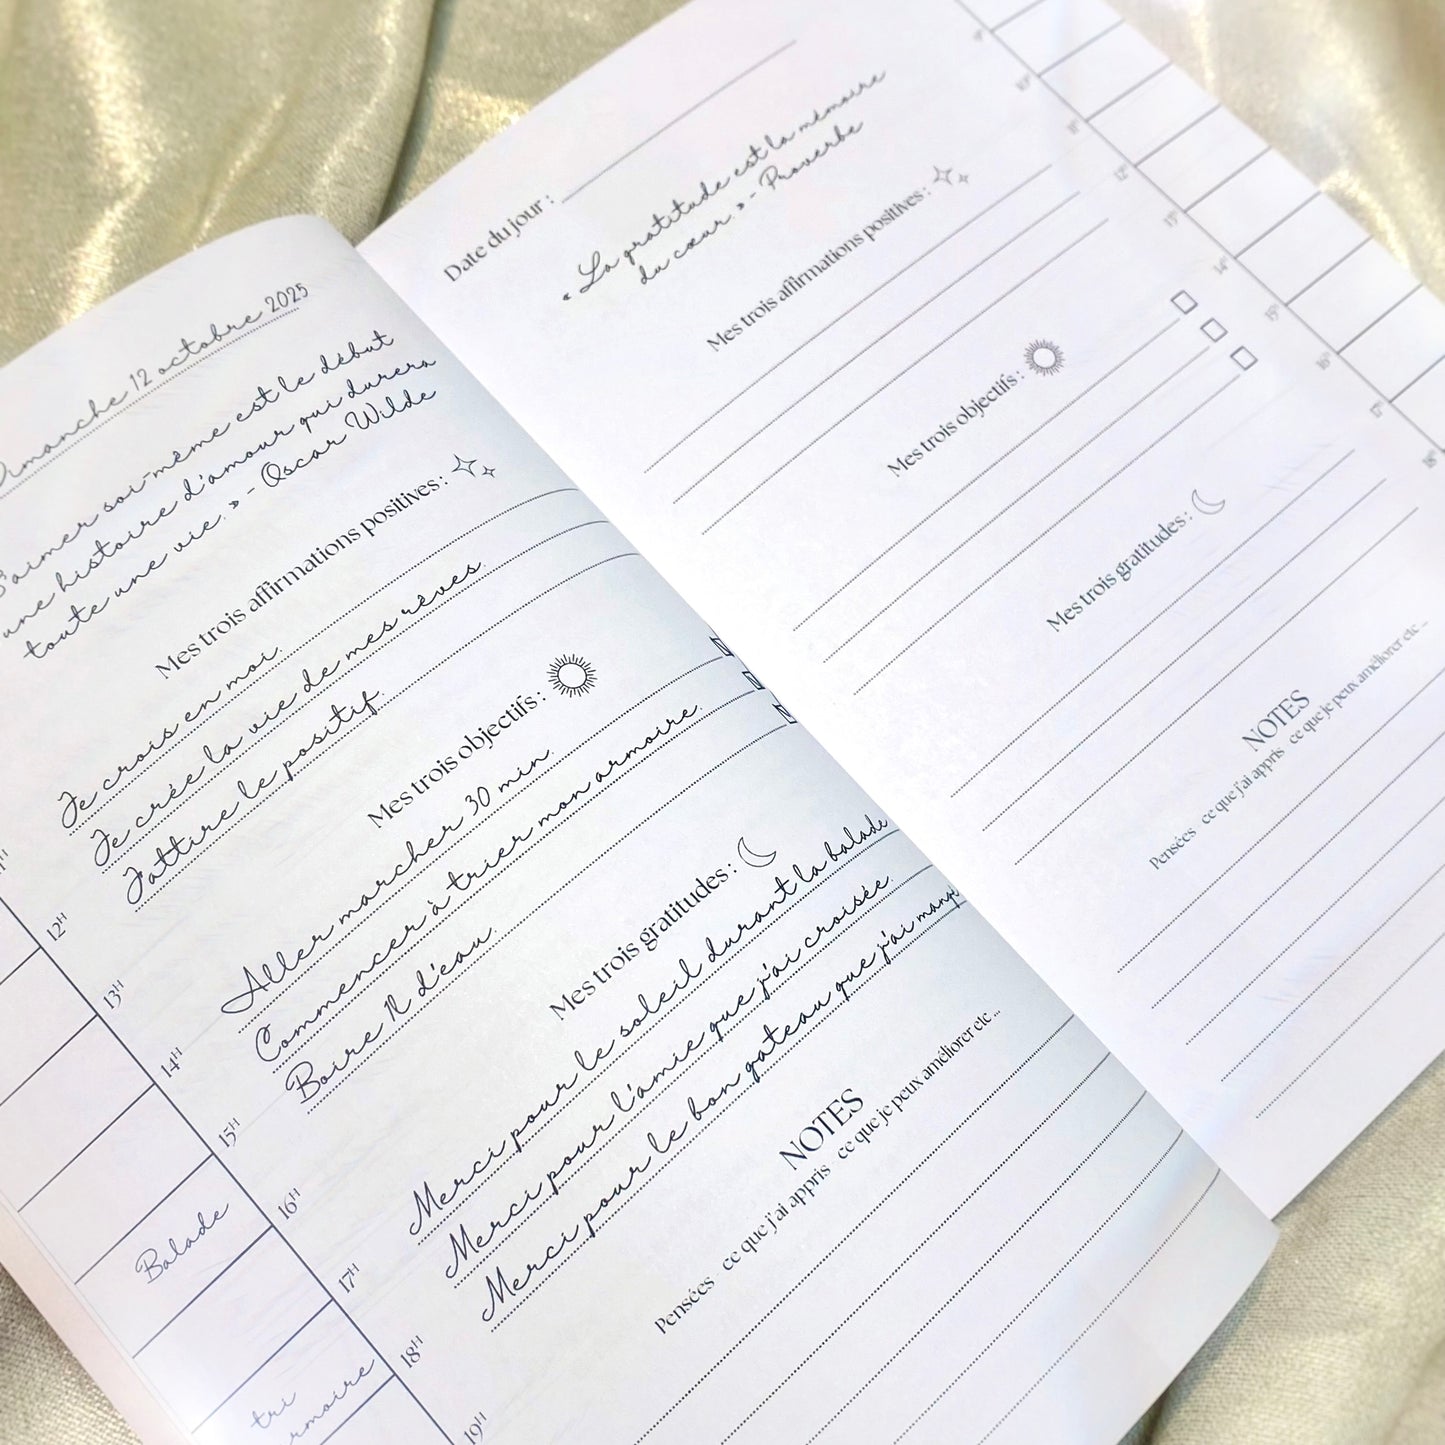 Dimanche 12 octobre 2025
S'aimer soi-même est le début
une histoire d'amour qui durera
toute une vie. » - Oscar Wilde
Mes trois affirmations positives :
Je crois en moi.
Je crée la vie de mes rêves.
J'attire le positif.
Mes trois objectifs :
Aller marcher 30 min.
Commencer à trier mon armoire.
Boire 1l d'eau.
Mes trois gratitudes :
Merci pour le soleil durant la balade
Merci pour l'amie que j'ai croisée.
Merci pour le bon gateau que j'ai
NOTES
Pensées ce que j'ai appris ce que je peux améliorer etc...
12H
13H
14H
15H
Balade
16H
17H
tri
18H
19H
Date du jour :
« La gratitude est la mémoire
du cœur. » - Proverbe
Mes trois affirmations positives :
Mes trois objectifs :
Mes trois gratitudes :
NOTES
Pensées ce que j'ai appris ce que je peux améliorer etc...
9H
10H
11H
12H
13H
14H
15H
16H
17H
18H